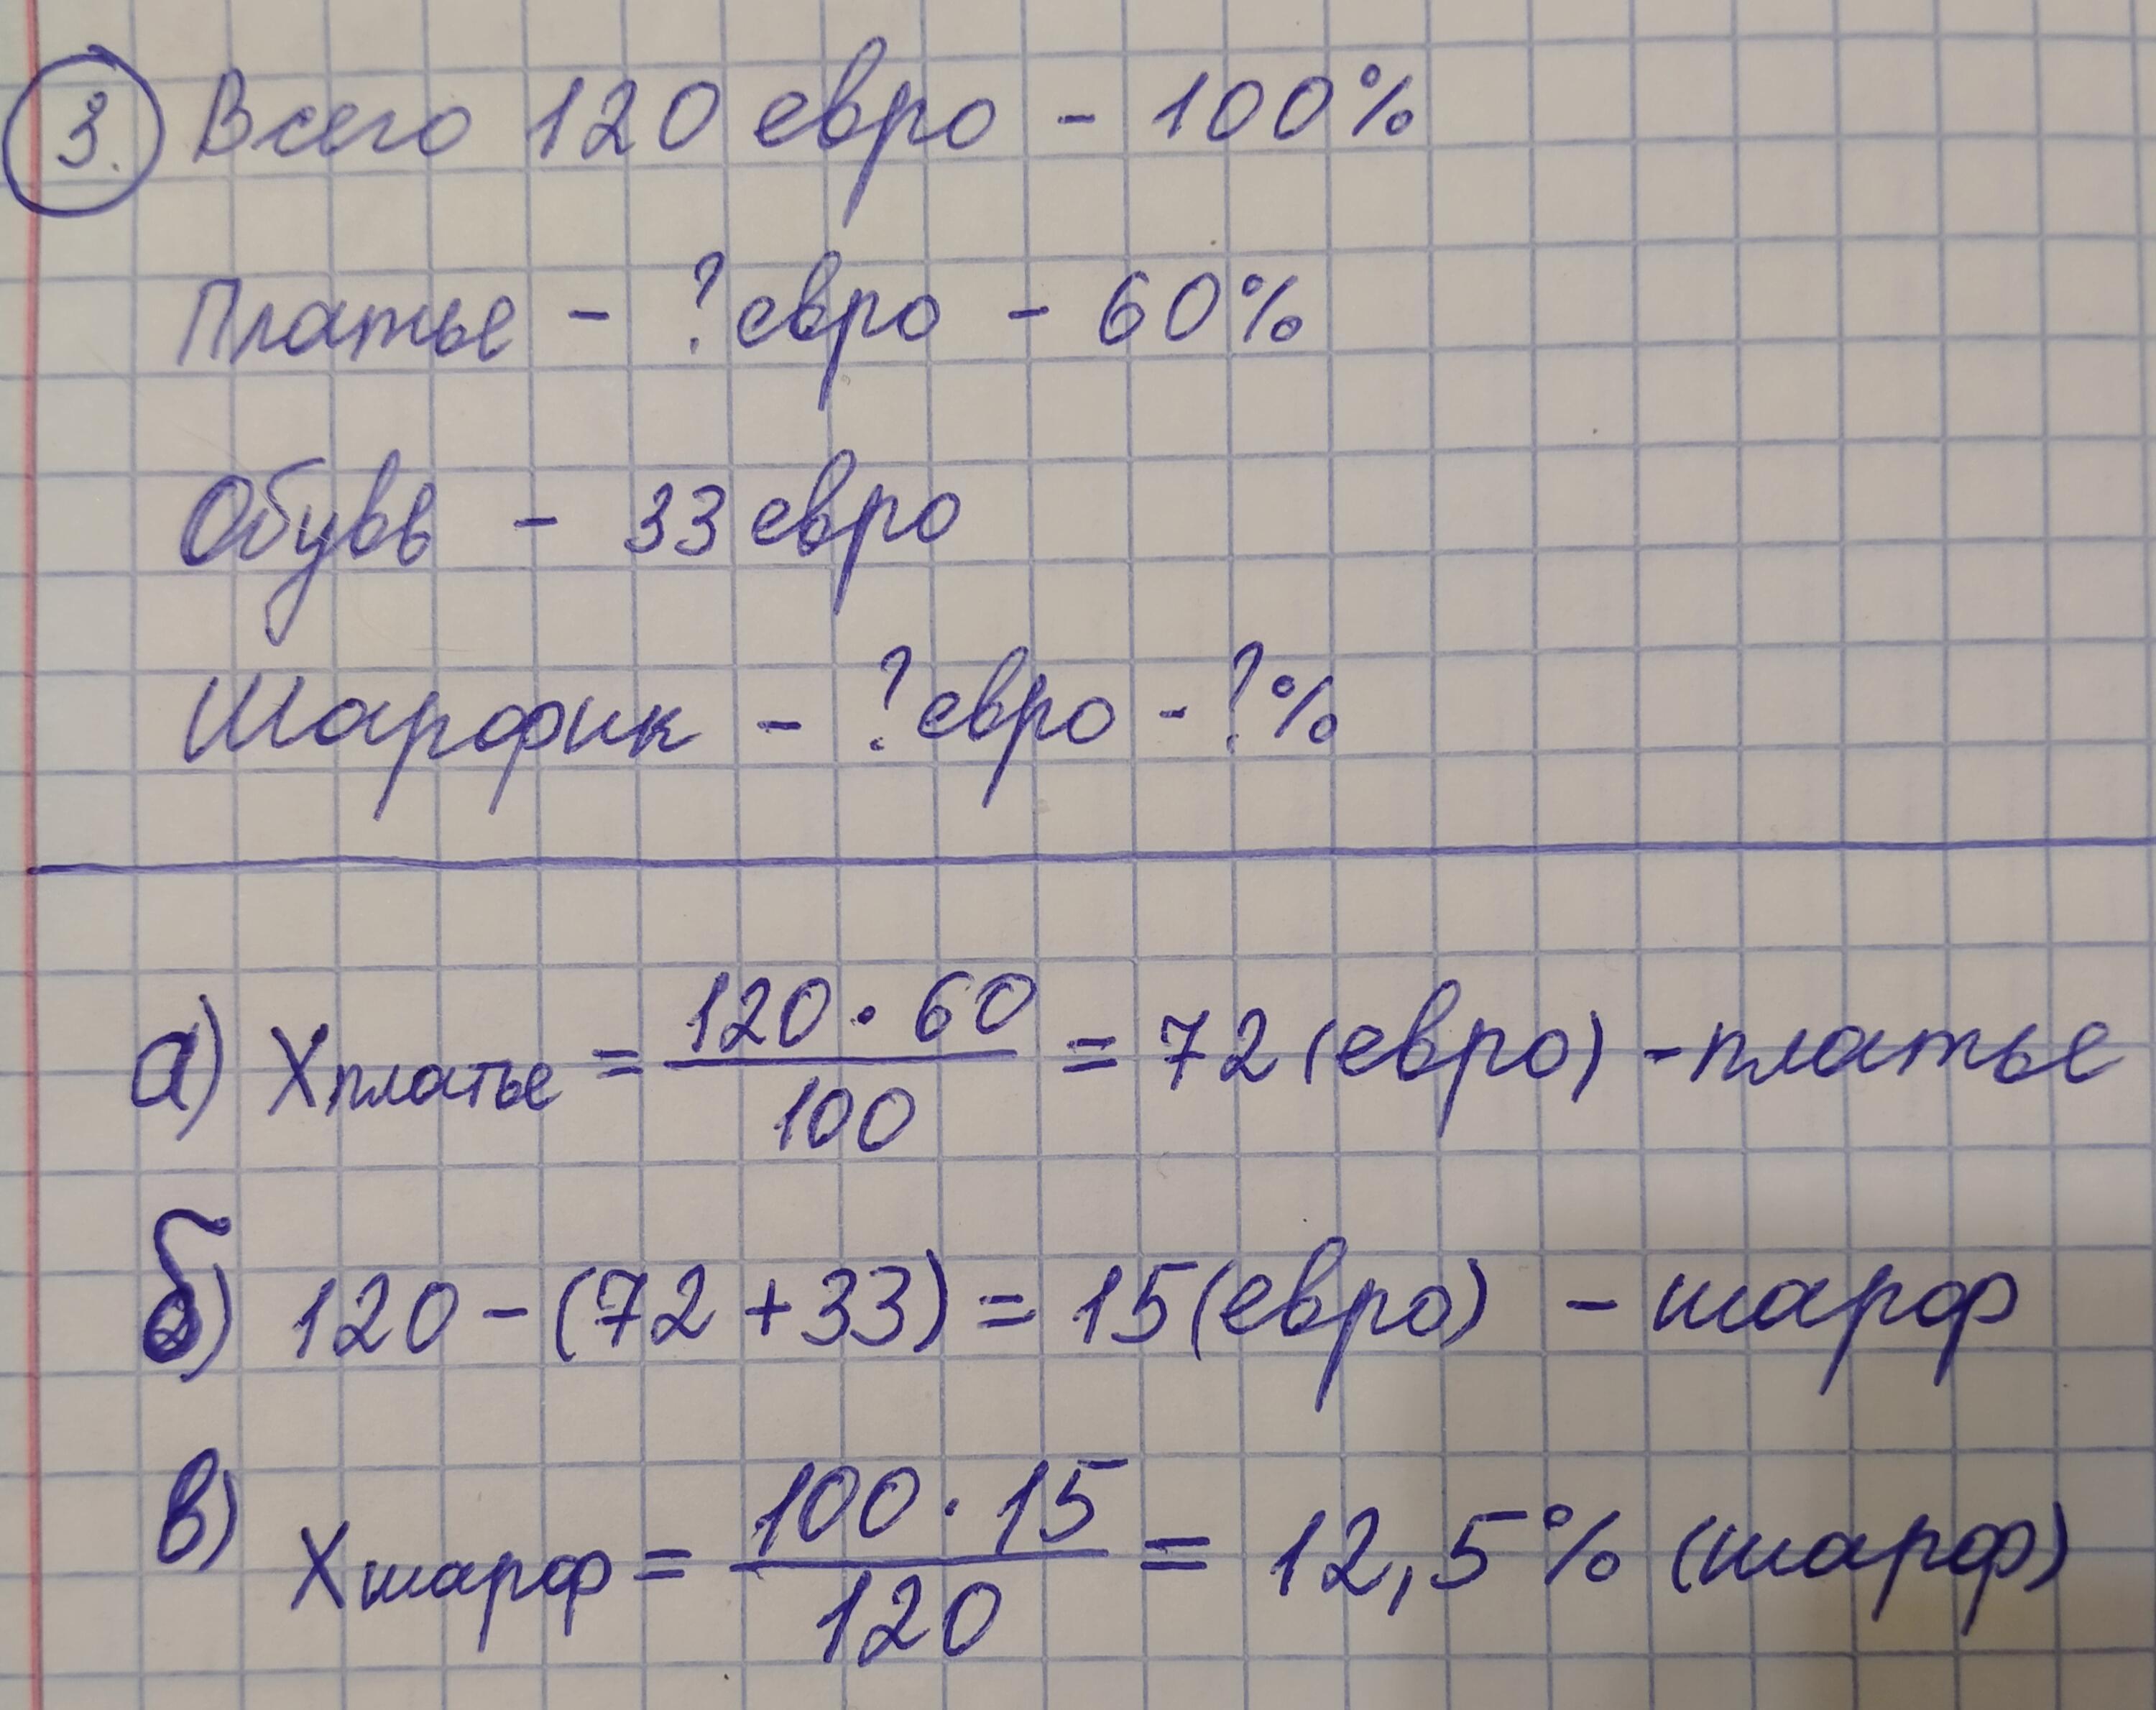 3. Всего 120 евро - 100%
Платье - ? евро - 60%
Обувь - 33 евро
Шарфик - ? евро - ? %
а) Xплатье = 120 · 60 / 100 = 72 (евро) - платье
б) 120 - (72 + 33) = 15 (евро) - шарф
в) Xшарф = 100 · 15 / 120 = 12,5% (шарф)